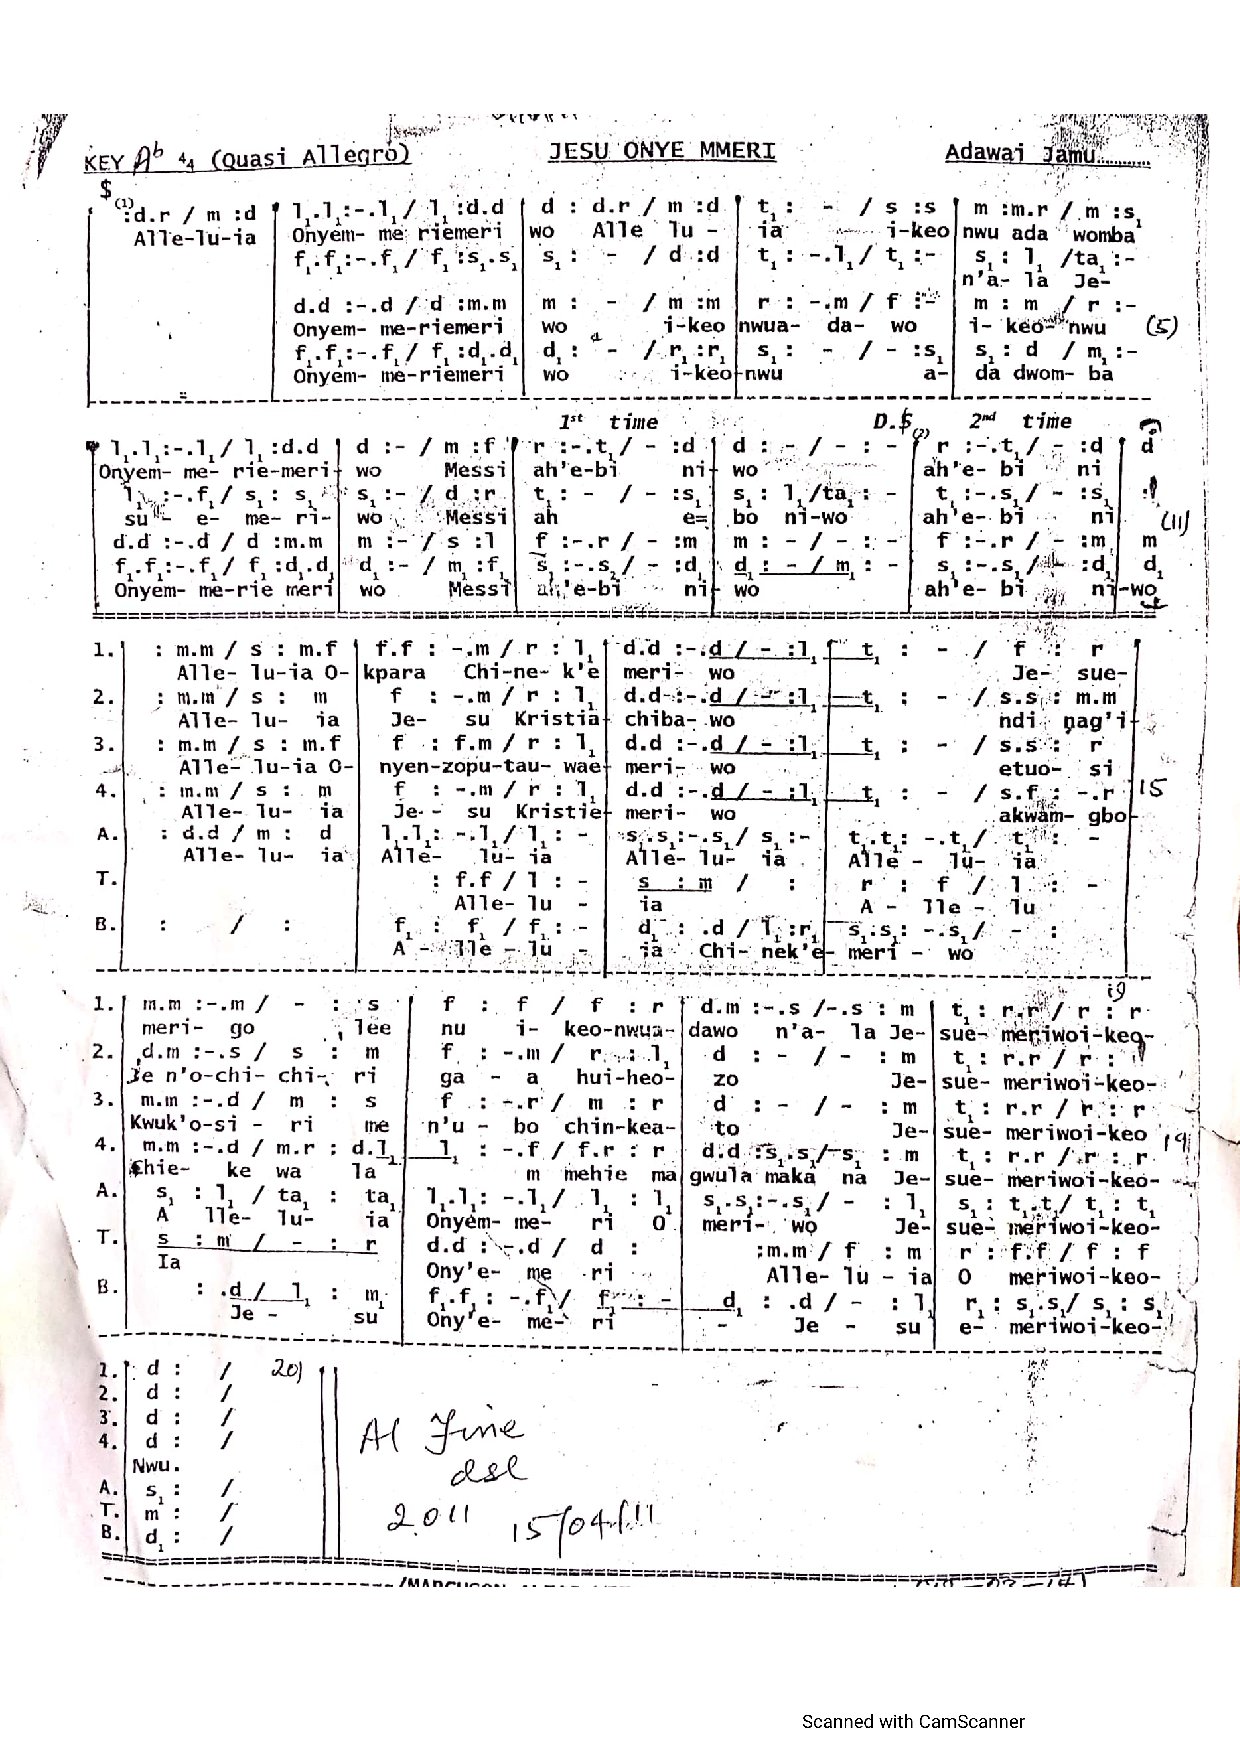 KEY Ab 4/4 (Quasi Allegro) JESU ONYE MMERI Adawai Jamu...........
$
(1) :d.r / m :d | l₁.l₁:-.l₁/ l₁:d.d | d : d.r / m :d | t₁ : - / s :s | m :m.r / m :s₁
Alle-lu-ia Onyem- me riemeri wo Alle lu - ia i-keo nwu ada womba
f₁.f₁:-.f₁/ f₁:s₁.s₁ | s₁ : - / d :d | t₁ : -.l₁/ t₁:- | s₁ : l₁ /ta₁:-
n'a- la Je-
d.d :-.d / d :m.m | m : - / m :m | r : -.m / f :- | m : m / r :-
Onyem- me-riemeri wo i-keo nwua- da- wo i- keo- nwu (5)
f₁.f₁:-.f₁/ f₁:d₁.d₁ | d₁ : - / r₁:r₁ | s₁ : - / - :s₁ | s₁ : d / m₁:-
Onyem- me-riemeri wo i-keo-nwu a- da dwom- ba
1st time D.$ (2) 2nd time
l₁.l₁:-.l₁/ l₁:d.d | d :- / m :f | r :-.t₁/ - :d | d : - / - : - | r :-.t₁/ - :d | d
Onyem- me- rie-meri- wo Messi ah'e-bi ni- wo ah'e- bi ni
l₁ :-.f₁/ s₁ : s₁ | s₁ :- / d :r | t₁ : - / - :s₁ | s₁ : l₁/ta₁ : - | t₁ :-.s₁/ - :s₁
su - e- me- ri- wo Messi ah e= bo ni-wo ah'e- bi ni (11)
d.d :-.d / d :m.m | m :- / s :l | f :-.r / - :m | m : - / - : - | f :-.r / - :m | m
f₁.f₁:-.f₁/ f₁:d₁.d₁ | d₁ :- / m₁:f₁ | s₁ :-.s₁/ - :d₁ | d₁ : - / m₁ : - | s₁ :-.s₁/ - :d₁ | d₁
Onyem- me-rie meri wo Messi ah'e-bi ni- wo ah'e- bi ni-wo
1. : m.m / s : m.f | f.f : -.m / r : l₁ | d.d :-.d / - :l₁ | t₁ : - / f : r
Alle- lu-ia O- kpara Chi-ne- k'e meri- wo Je- sue-
2. : m.m / s : m | f : -.m / r : l₁ | d.d :-.d / - :l₁ | t₁ : - / s.s : m.m
Alle- lu- ia Je- su Kristia- chiba- wo ndi nag'i-
3. : m.m / s : m.f | f : f.m / r : l₁ | d.d :-.d / - :l₁ | t₁ : - / s.s : r
Alle- lu-ia O- nyen-zopu-tau- wae- meri- wo etuo- si
4. : m.m / s : m | f : -.m / r : l₁ | d.d :-.d / - :l₁ | t₁ : - / s.f : -.r 15
Alle- lu- ia Je- su Kristie- meri- wo akwam- gbo-
A. : d.d / m : d | l₁.l₁: -.l₁/ l₁ : - | s₁.s₁:-.s₁/ s₁:- | t₁.t₁: -.t₁/ t₁ : -
Alle- lu- ia Alle- lu- ia Alle- lu- ia Alle - lu- ia
T. : f.f / l : - | s : m / : | r : f / l : -
Alle- lu - ia A - lle - lu
B. : / : | f₁ : f₁ / f₁ : - | d₁ : .d / l₁:r₁ | s₁.s₁: -.s₁/ - :
A - lle - lu - ia Chi- nek'e- meri - wo
19
1. m.m :-.m / - : s | f : f / f : r | d.m :-.s /-.s : m | t₁ : r.r / r : r
meri- go , lee nu i- keo-nwua- dawo n'a- la Je- sue- meriwoi-keo-
2. d.m :-.s / s : m | f : -.m / r : l₁ | d : - / - : m | t₁ : r.r / r :
Je n'o-chi- chi- ri ga - a hui-heo- zo Je- sue- meriwoi-keo-
3. m.m :-.d / m : s | f : -.r / m : r | d : - / - : m | t₁ : r.r / r : r
Kwuk'o-si - ri me n'u - bo chin-kea- to Je- sue- meriwoi-keo
4. m.m :-.d / m.r : d.l₁ | l₁ : -.f / f.r : r | d.d :s₁.s₁/-s₁ : m | t₁ : r.r / r : r 19
Chie- ke wa la m mehie ma gwula maka na Je- sue- meriwoi-keo-
A. s₁ : l₁ / ta₁ : ta₁ | l₁.l₁: -.l₁/ l₁ : l₁ | s₁.s₁:-.s₁/ - : l₁ | s₁ : t₁.t₁/ t₁ : t₁
A lle- lu- ia Onyem- me- ri O meri- wo Je- sue- meriwoi-keo-
T. s : m / - : r | d.d : -.d / d : | :m.m / f : m | r : f.f / f : f
Ia Ony'e- me ri Alle- lu - ia O meriwoi-keo-
B. : .d / l₁ : m₁ | f₁.f₁ : -.f₁/ f₁ : - | d₁ : .d / - : l₁ | r₁ : s₁.s₁/ s₁ : s₁
Je - su Ony'e- me- ri - Je - su e- meriwoi-keo-
1. d : / 20)
2. d : /
3. d : /
4. d : /
Nwu.
A. s₁ : /
T. m : /
B. d₁ : /
Al Fine
dsl
2011 15/04/11
Scanned with CamScanner